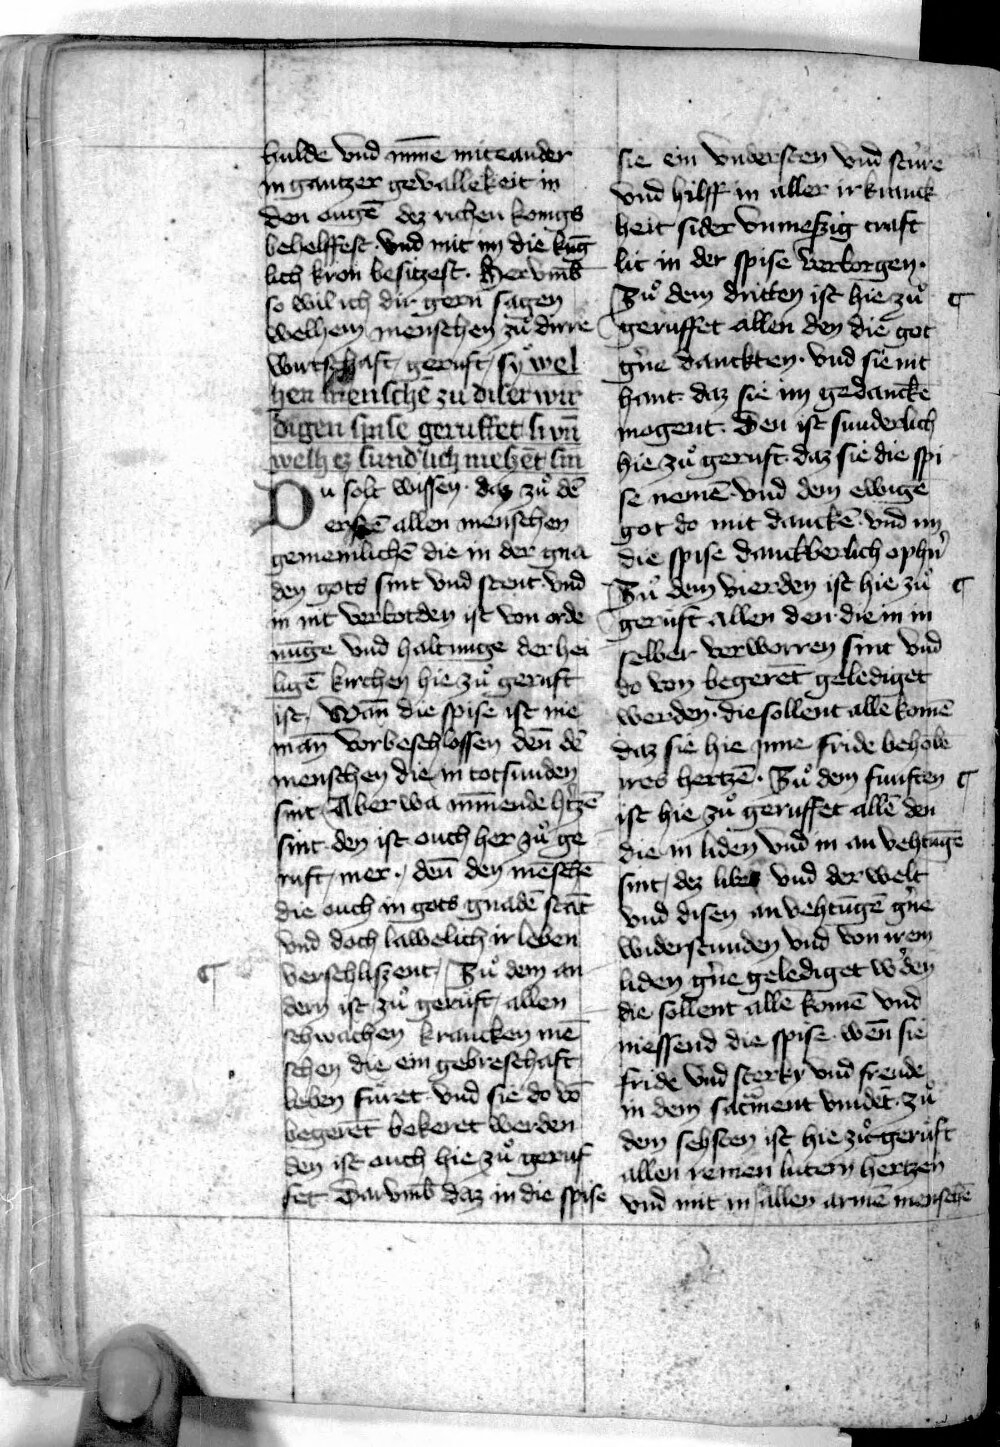 hulde vnd mīne miteander
in gantzer gevallekeit in
den ougē dez richen konigs
behelffest. vnd mit im die kūg
lich kron besitzest. Her vmb
so wil ich dir gern sagen
welhem menschen zů dirre
wirtschaft geruft sy wel
hen menschē zu diser wir
digen spise geruffet si vn̄
welhez sund'lich niezēt sin
Du solt wissen. daz zů dē
ersten allen menschen
gemeinlichē die in der gna
den gots sint vnd stent. vnd
in nit verbotden ist von orde
nūge vnd haltunge der hei
ligē kirchen hie zů geruft
ist. Wan̄ die spise ist nie
man̄ vorbeschlossen den̄ dē
menschen die in totsunden
sint. Aber wa mīnende h'tzē
sint. den ist ouch her zů ge
ruft mer. den̄ den mēschē
die ouch in gots gnadē stāt
vnd doch lawelich ir leben
verschliszent. Zů dem an
dern ist zů gerůft allen
schwachen krancken mē
schen die ein gebreschaft
leben fůret. vnd sie do vō
begerēt bekeret werden
den ist ouch hie zů geruf
fet Dar vmb daz in die spise
sie ein vndersten vnd stúre
vnd hilff in aller ir kranck
heit sider vnmeßig craft
lit in der spise verborgen.
Zů dem dritten ist hie zů ¶
geruffet allen den die got
g'ne danckten. vnd sie nit
hant. daz sie im gedanckē
mogent. Den ist sunderlich
hie zů geruft. daz sie die spi
se nemē. vnd dem ewigē
got do mit danckē. vnd im
die spise danckberlich oph'n
Zů dem vierden ist hie zů ¶
gerůft allen den. die in in
selber verworren sint vnd
do von begerēt gelediget
werden. die sollent alle komē
daz sie hie inne fride behobē
ires hertzē. Zů dem funften ¶
ist hie zů geruffet allē den
die in liden vnd in an vehtūgē
sint dez libes vnd der welt
vnd disen an vehtūgē g'ne
widerstunden vnd von irem
liden g'ne gelediget w'den
die sollent alle komē vnd
niessend die spise. wen̄ sie
fride vnd sterky vnd freude
in dem sacment vindēt. zů
dem sehsten ist hie zů gerůft
allen reinen lutern hertzen
vnd mit in allen armē menschē